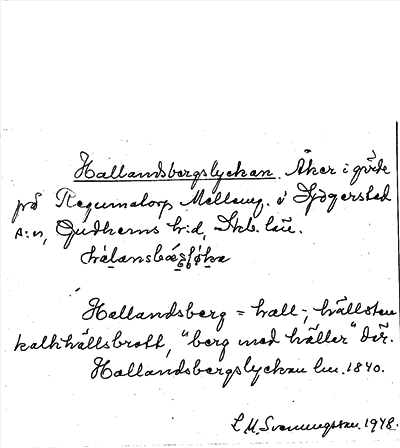 Hallandsbergslyckan. Åker i gärde
på Regumatorp Mellomg. i Sjogerstad
s:n, Gudhems h:d, Skb. län.
Hallandsberg = hall-, hällsten
kalkhällsbrott, "berg med hällar" där.
Hallandsbergslyckan lm. 1840.
L.M. Svenungsson. 1948.